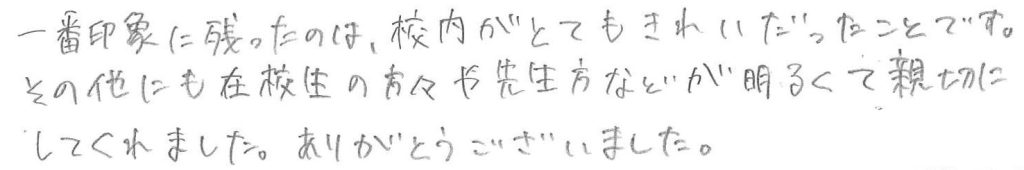 一番印象に残ったのは、校内がとてもきれいだったことです。
その他にも在校生の方々や先生方などが明るくて親切に
してくれました。ありがとうございました。